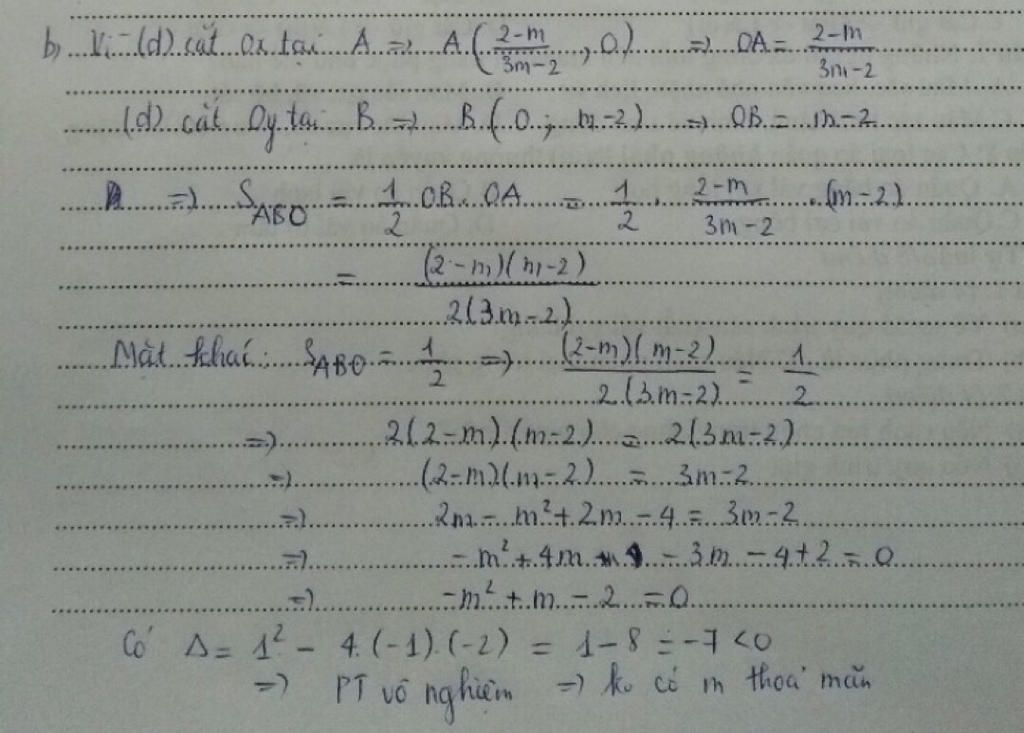 b, Vì (d) cắt Ox tại A => A(2-m/3m-2, 0) => OA = 2-m/3m-2
(d) cắt Oy tại B => B(0; m-2) => OB = m-2
=> S_ABO = 1/2 OB. OA = 1/2 . 2-m/3m-2 . (m-2)
= (2-m)(m-2)/2(3m-2)
Mặt khác: S_ABO = 1/2 => (2-m)(m-2)/2(3m-2) = 1/2
=> 2(2-m)(m-2) = 2(3m-2)
=> (2-m)(m-2) = 3m-2
=> 2m - m² + 2m - 4 = 3m-2
=> -m² + 4m - 3m - 4+2 = 0
=> -m² + m - 2 = 0
Có Δ = 1² - 4.(-1).(-2) = 1-8 = -7 <0
=> PT vô nghiệm => ko có m thoả mãn